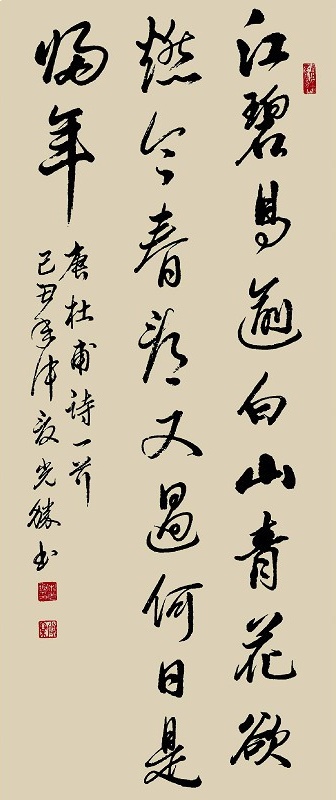 江碧鸟逾白山青花欲
燃今春看又過何日是
归年
唐杜甫诗一首
己丑年光勝书